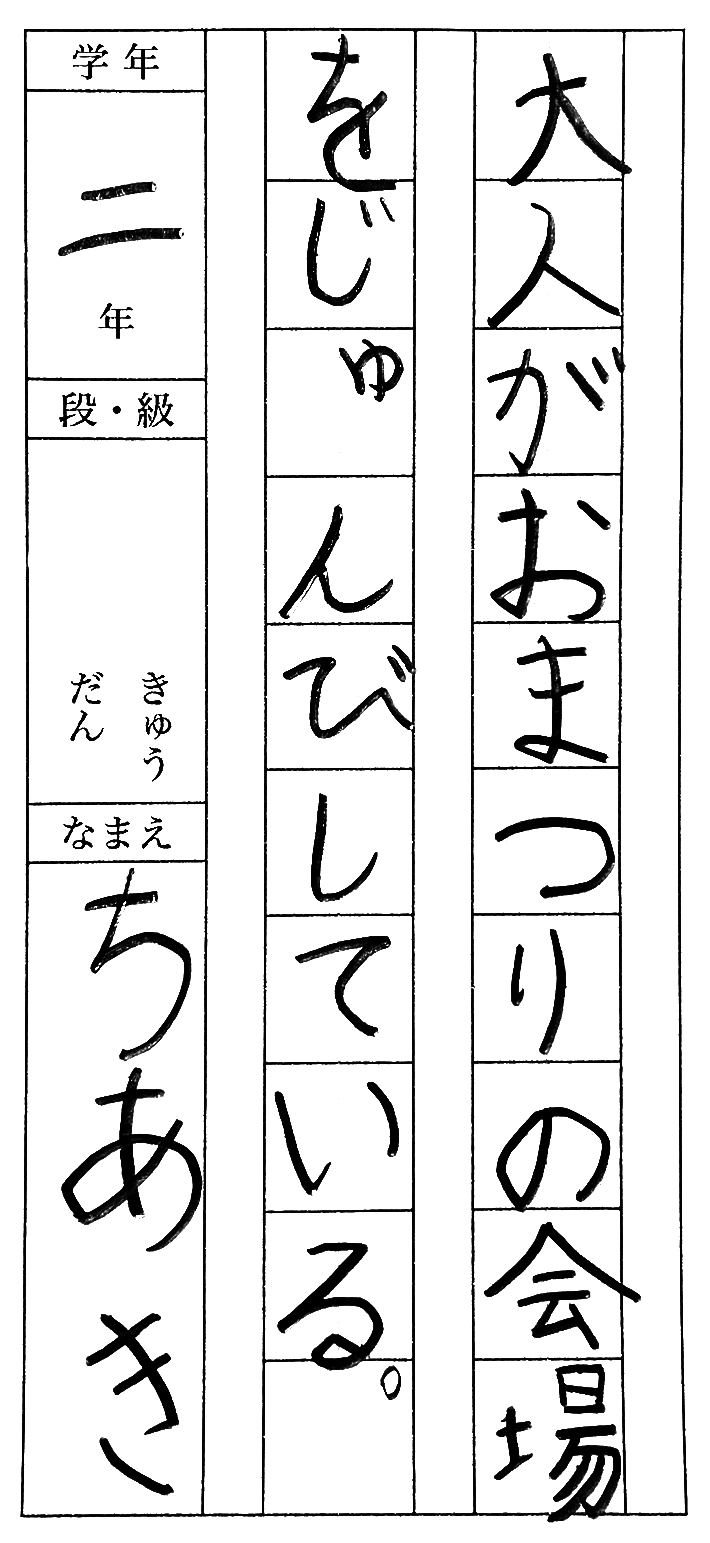 大人がおまつりの会場
をじゅんびしている。
学年
二年
段・級
きゅう
だん
なまえ
ちあき